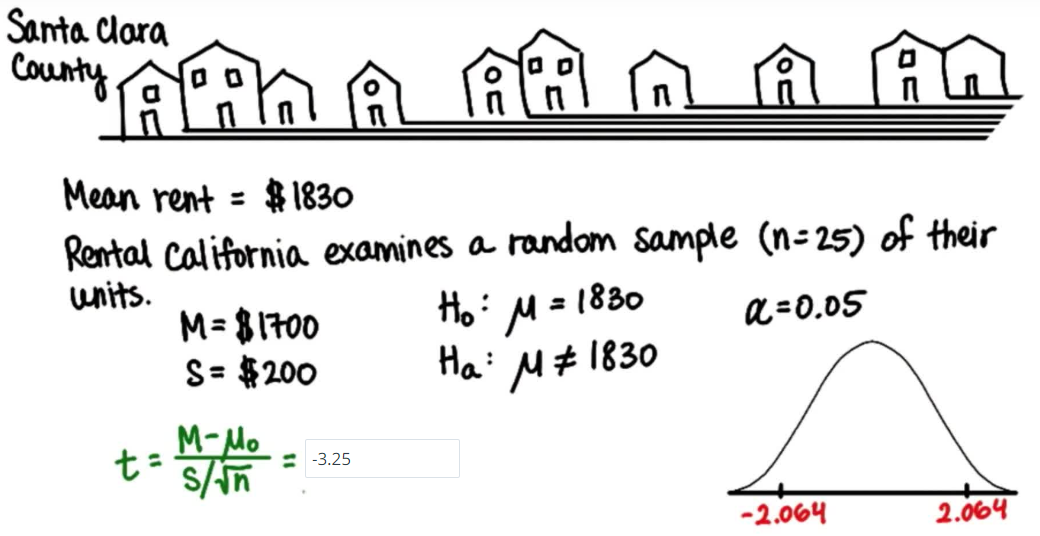 Santa Clara
County
Mean rent = $1830
Rental California examines a random sample (n=25) of their
units.
M = $1700
S = $200
H₀: μ = 1830
Hₐ: μ ≠ 1830
α=0.05
t = (M-μ₀)/(S/√n) = -3.25
-2.064 2.064